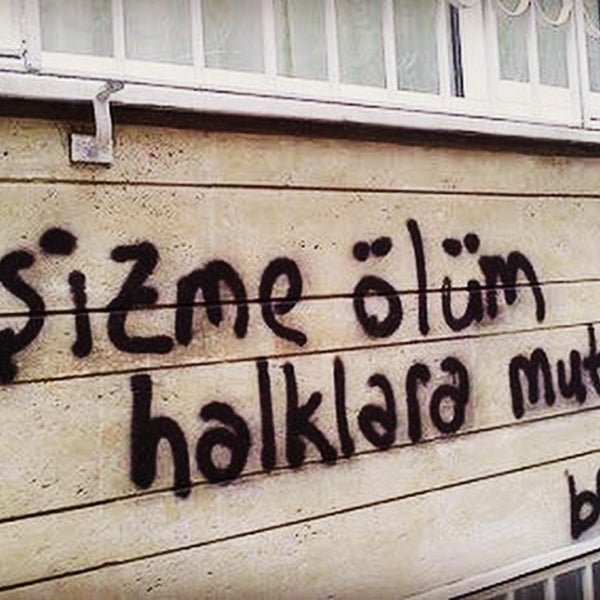 şizme ölüm
halklara mut